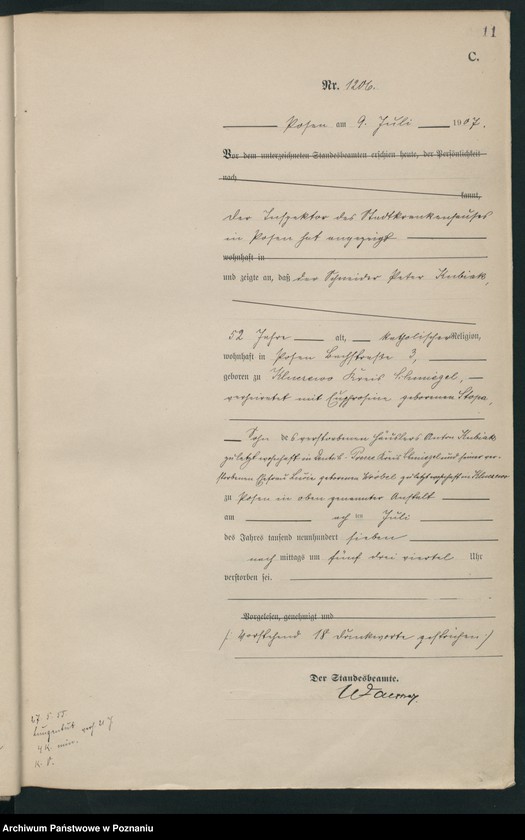 11
C.
Nr. 1206.
Posen am 9. Juli 1907.
Vor dem unterzeichneten Standesbeamten erschien heute, der Persönlichkeit
nach
kannt,
der Inspektor des Stadtkrankenhauses
in Posen hat angezeigt
wohnhaft in
und zeigte an, daß der Schneider Peter Kubiak,
52 Jahre alt, katholischer Religion,
wohnhaft in Posen Bachstraße 3,
geboren zu Kreis Schmiegel,
verheiratet mit Euphrosine geborenen Stopa,
Sohn des verstorbenen Häuslers Anton Kubiak
zuletzt wohnhaft in Kreis Schmiegel und seiner ver-
storbenen Ehefrau geborenen zuletzt wohnhaft in
zu Posen in oben genannter Anstalt
am acht ten Juli
des Jahres tausend neunhundert sieben
nach mittags um fünf drei viertel Uhr
verstorben sei.
Vorgelesen, genehmigt und
/: Vorstehend 18 Druckworte gestrichen :/
Der Standesbeamte.
27 5 55
4 K. min.
K. P.
Archiwum Państwowe w Poznaniu